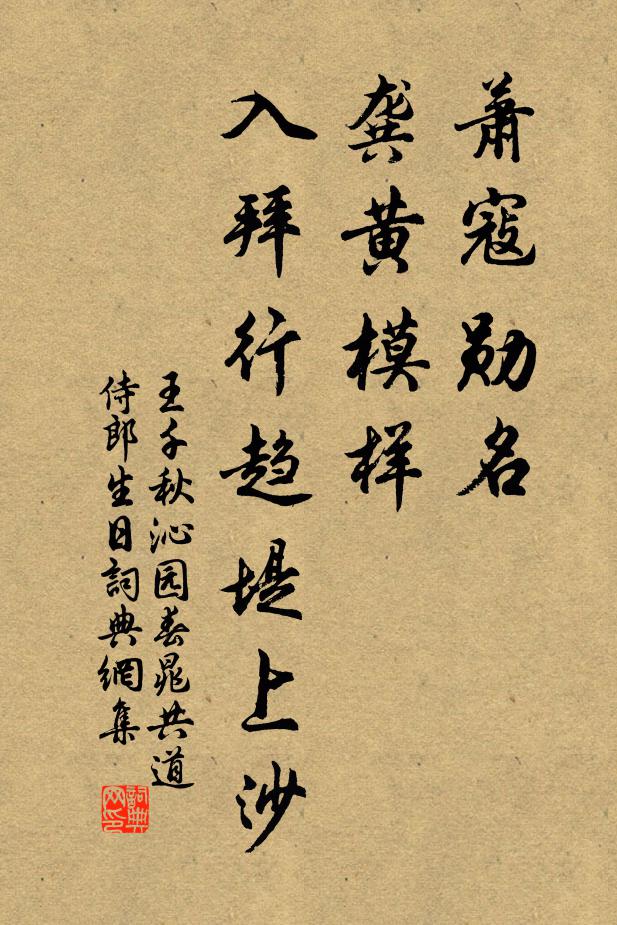 萧寇勋名
龚黄模样
入拜行趋堤上沙
王千秋沁园春晁共道
侍郎生日詞典網集
詞典网印